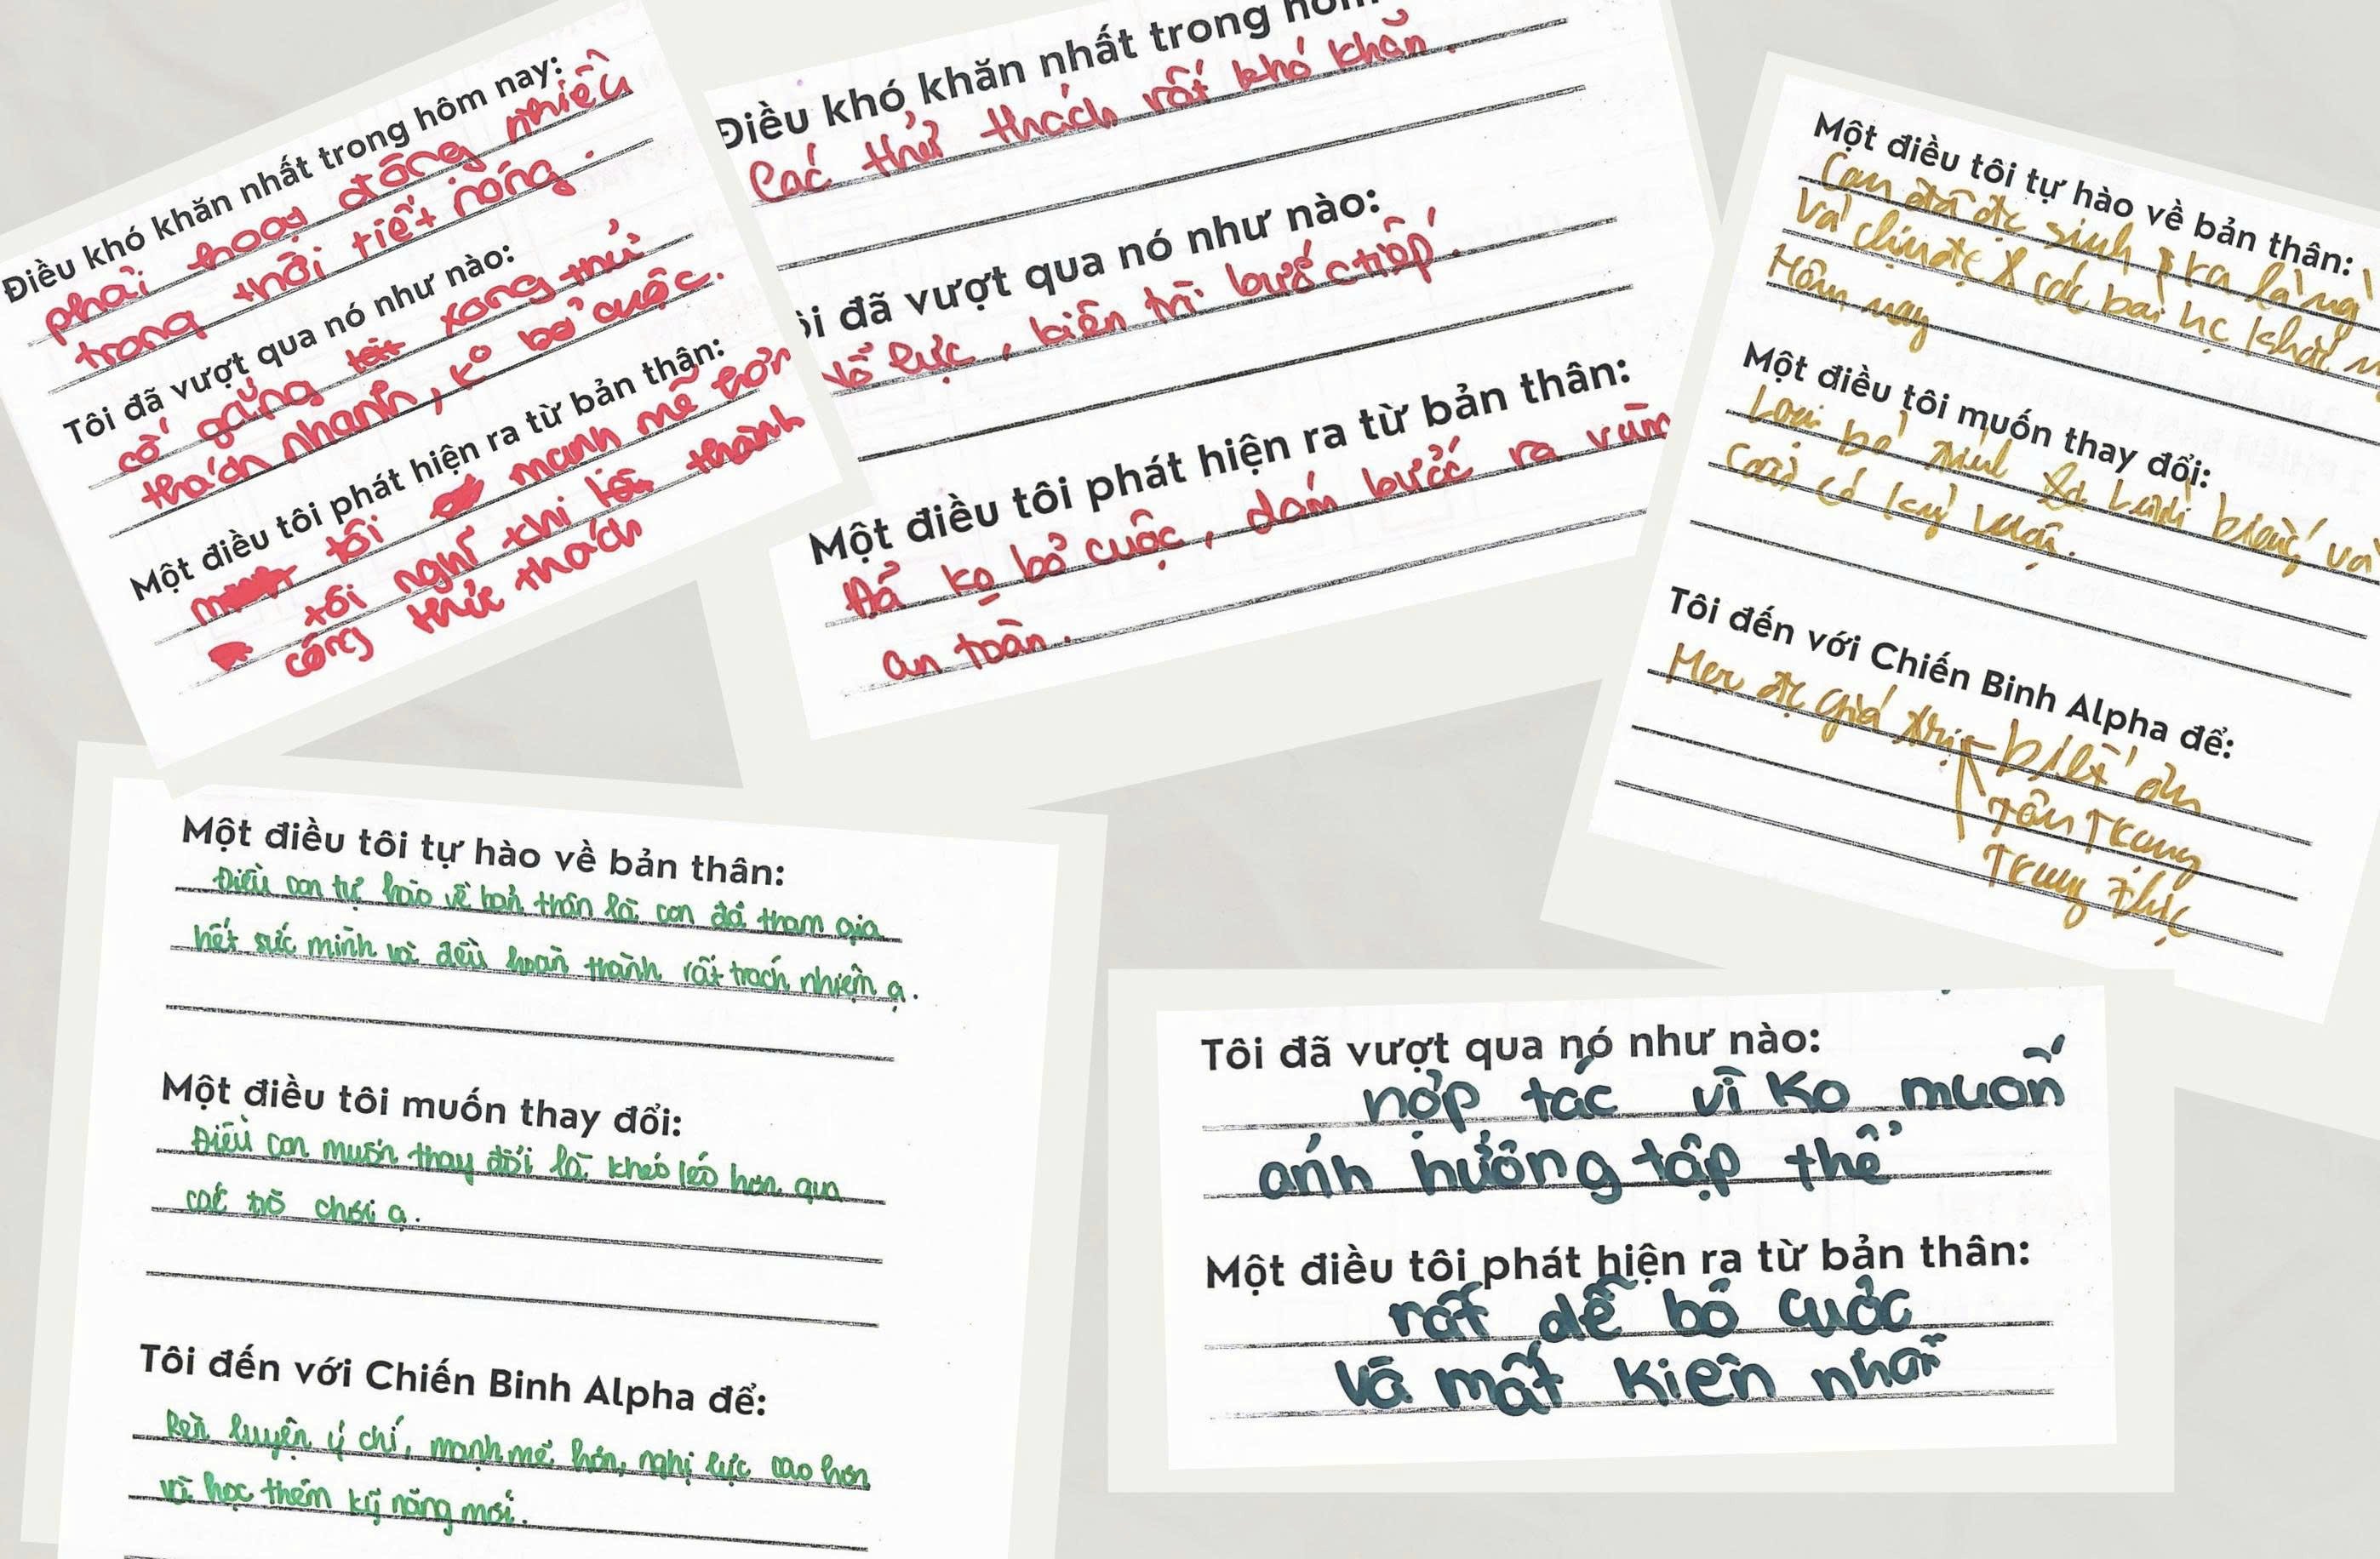 Điều khó khăn nhất trong hôm nay:
phải hoạt động nhiều
trong thời tiết nóng.
Tôi đã vượt qua nó như nào:
cố gắng xong thử
thách nhanh, ko bỏ cuộc.
Một điều tôi phát hiện ra từ bản thân:
tôi mạnh mẽ hơn
tôi nghĩ khi thành
công thử thách
Điều khó khăn nhất trong hôm
Các thử thách rất khó khăn.
ôi đã vượt qua nó như nào:
Nỗ lực, kiên trì bước tiếp.
Một điều tôi phát hiện ra từ bản thân:
Đã ko bỏ cuộc, dám bước ra vùng
an toàn.
Một điều tôi tự hào về bản thân:
Con đã đc sinh ra
và các bài học
Hôm nay
Một điều tôi muốn thay đổi:
Loại bỏ lười biếng và
Tôi đến với Chiến Binh Alpha để:
Học đc giá trị biết ơn
Tôn Trọng
Trung thực
Một điều tôi tự hào về bản thân:
Điều con tự hào về bản thân là con đã tham gia
hết sức mình và đều hoàn thành rất trách nhiệm ạ.
Một điều tôi muốn thay đổi:
Điều con muốn thay đổi là khéo léo hơn qua
các trò chơi ạ.
Tôi đến với Chiến Binh Alpha để:
Rèn luyện ý chí, mạnh mẽ hơn, nghị lực cao hơn
và học thêm kỹ năng mới.
Tôi đã vượt qua nó như nào:
hợp tác vì ko muốn
ảnh hưởng tập thể
Một điều tôi phát hiện ra từ bản thân:
rất dễ bỏ cuộc
và mất kiên nhẫn